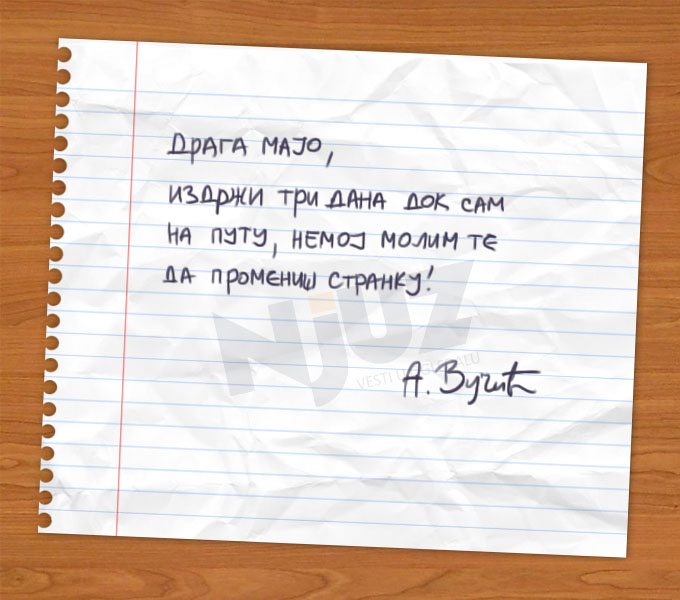 Драга Мајо,
издржи три дана док сам
на путу, немој молим те
да промениш странку!
NJUZ
VESTI U
А. Вучић